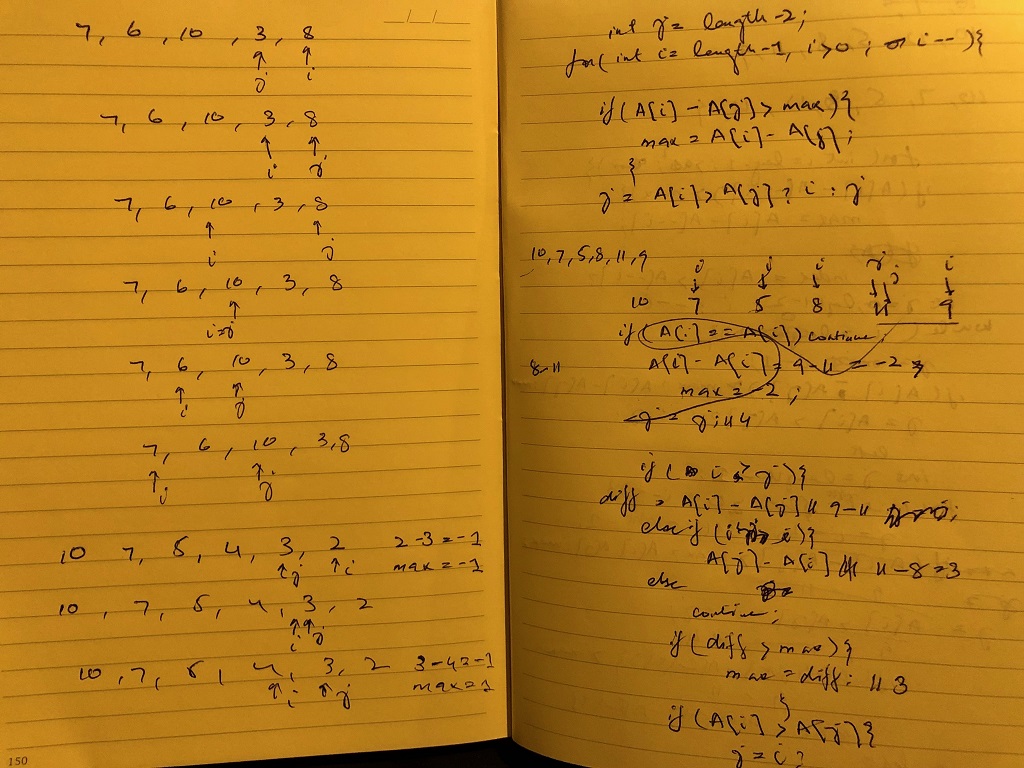 7, 6, 10, 3, 8
↑ ↑
j i
7, 6, 10, 3, 8
↑ ↑
i j
7, 6, 10, 3, 8
↑ ↑
i j
7, 6, 10, 3, 8
↑
i=j
7, 6, 10, 3, 8
↑ ↑
i j
7, 6, 10, 3,8
↑ ↑
i j
10 7, 5, 4, 3, 2 2-3=-1
↑j ↑i max=-1
10, 7, 5, 4, 3, 2
↑↑
i j
10, 7, 5, 4, 3, 2 3-4=-1
↑i ↑j max=1
150
int j= length-2;
for( int i= length-1, i>0; i--){
if(A[i] - A[j]> max){
max = A[i]- A[j];
}
j = A[i]> A[j]? i : j
10,7,5,8,11,9
j j i j i
↓ ↓ ↓ ↓↓ ↓
10 7 5 8 11 9
if (A[i]==A[j]) continue;
8-11 A[i]- A[j]= 9-11 = -2
max = -2;
j = j; 114
if ( i > j){
diff = A[i]- A[j] 11 9-11
else if (j > i){
A[j]- A[i] 11 11-8=3
else
continue;
if (diff > max){
max = diff; 11 3
}
if (A[i] > A[j]){
j = i;